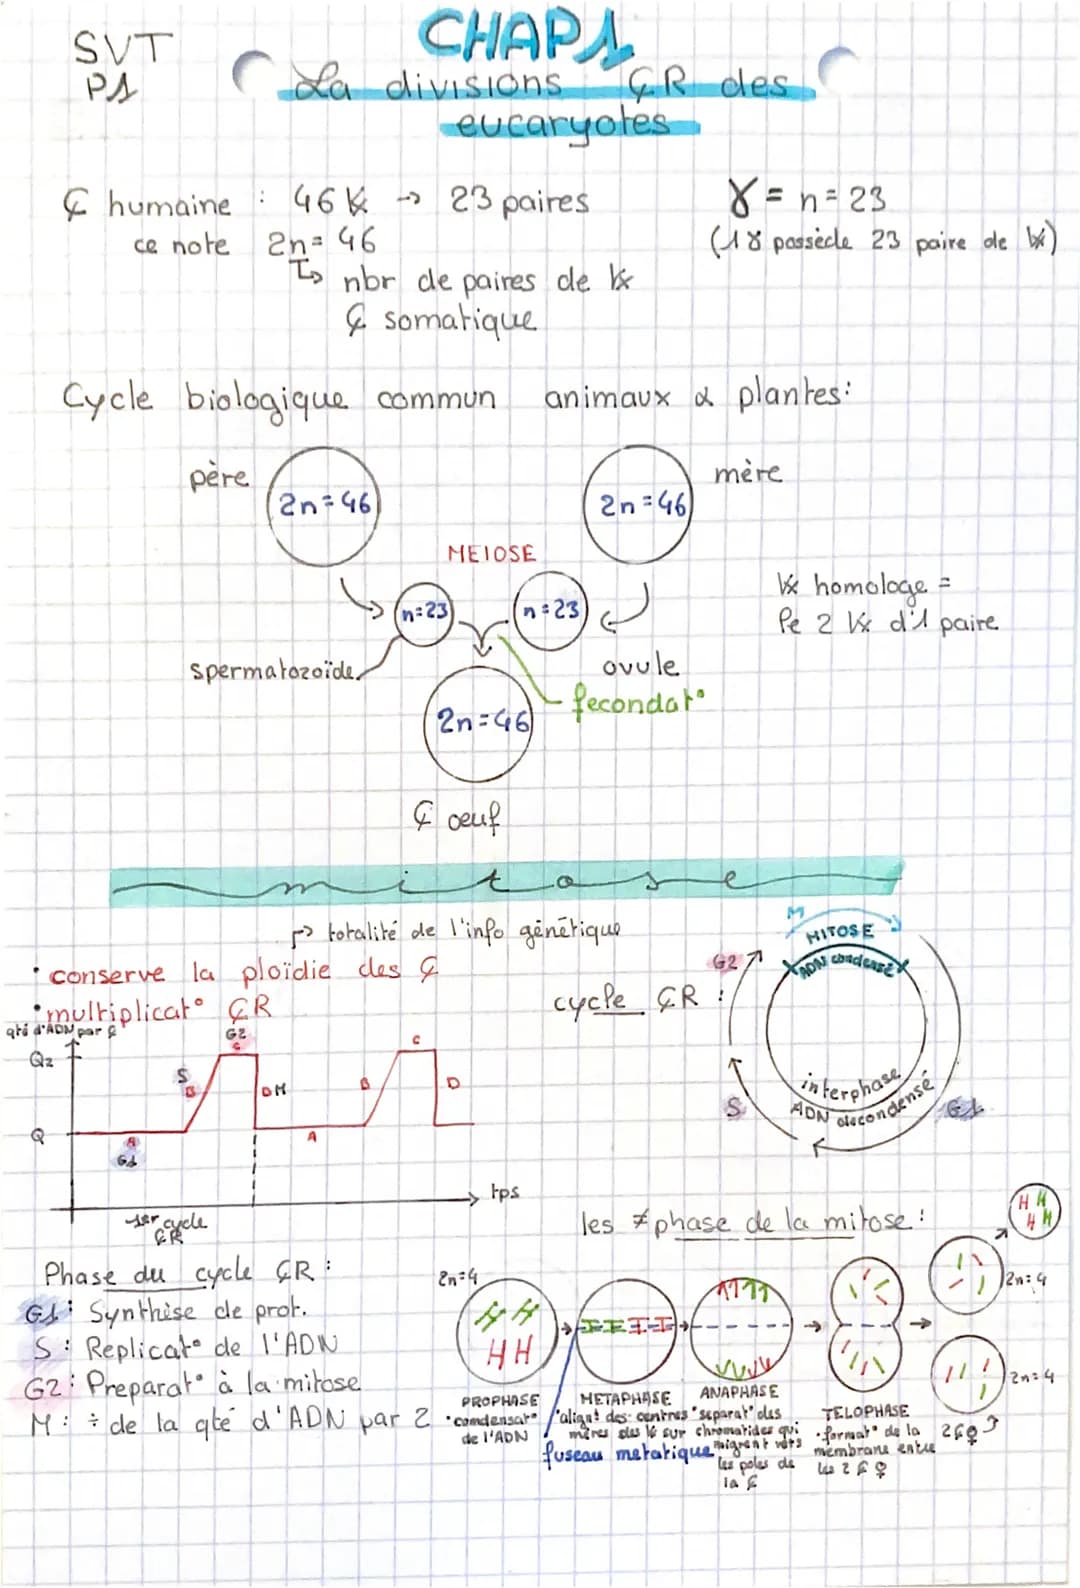 SVT
P1
CHAP1
La divisions ȻR des
eucaryotes
Ȼ humaine : 46 K → 23 paires
ce note 2n = 46
↳ nbr de paires de K
Ȼ somatique
γ = n = 23
(1 γ possède 23 paire de K)
Cycle biologique commun animaux & plantes :
père
2n = 46
mère
2n = 46
MEIOSE
n = 23
n = 23
spermatozoïde
ovule
fecondat°
2n = 46
Ȼ œuf
K homologe =
le 2 K d'1 paire
mitose
↱ totalité de l'info génétique
• conserve la ploïdie des Ȼ
• multiplicat° ȻR
qté d'ADN par Ȼ
Q2
Q
S
B
G2
C
DM
A
G1
A
B
C
D
tps
1er cycle
ȻR
cycle ȻR :
M
MITOSE
ADN condensé
G2
S
interphase
ADN decondensé
G1
Phase du cycle ȻR :
G1 : Synthèse de prot.
S : Replicat° de l'ADN
G2 : Preparat° à la mitose
M : ÷ de la qté d'ADN par 2
les ≠ phase de la mitose :
2n = 4
PROPHASE
• condensat°
de l'ADN
METAPHASE
• align† des centres
mères des K sur
fuseau metatique
ANAPHASE
• separat° des
chromatides qui
migrent vers
les poles de
la Ȼ
TELOPHASE
• format° de la
membrane entre
les 2 Ȼ♀
2 Ȼ♀
2n = 4
2n = 4